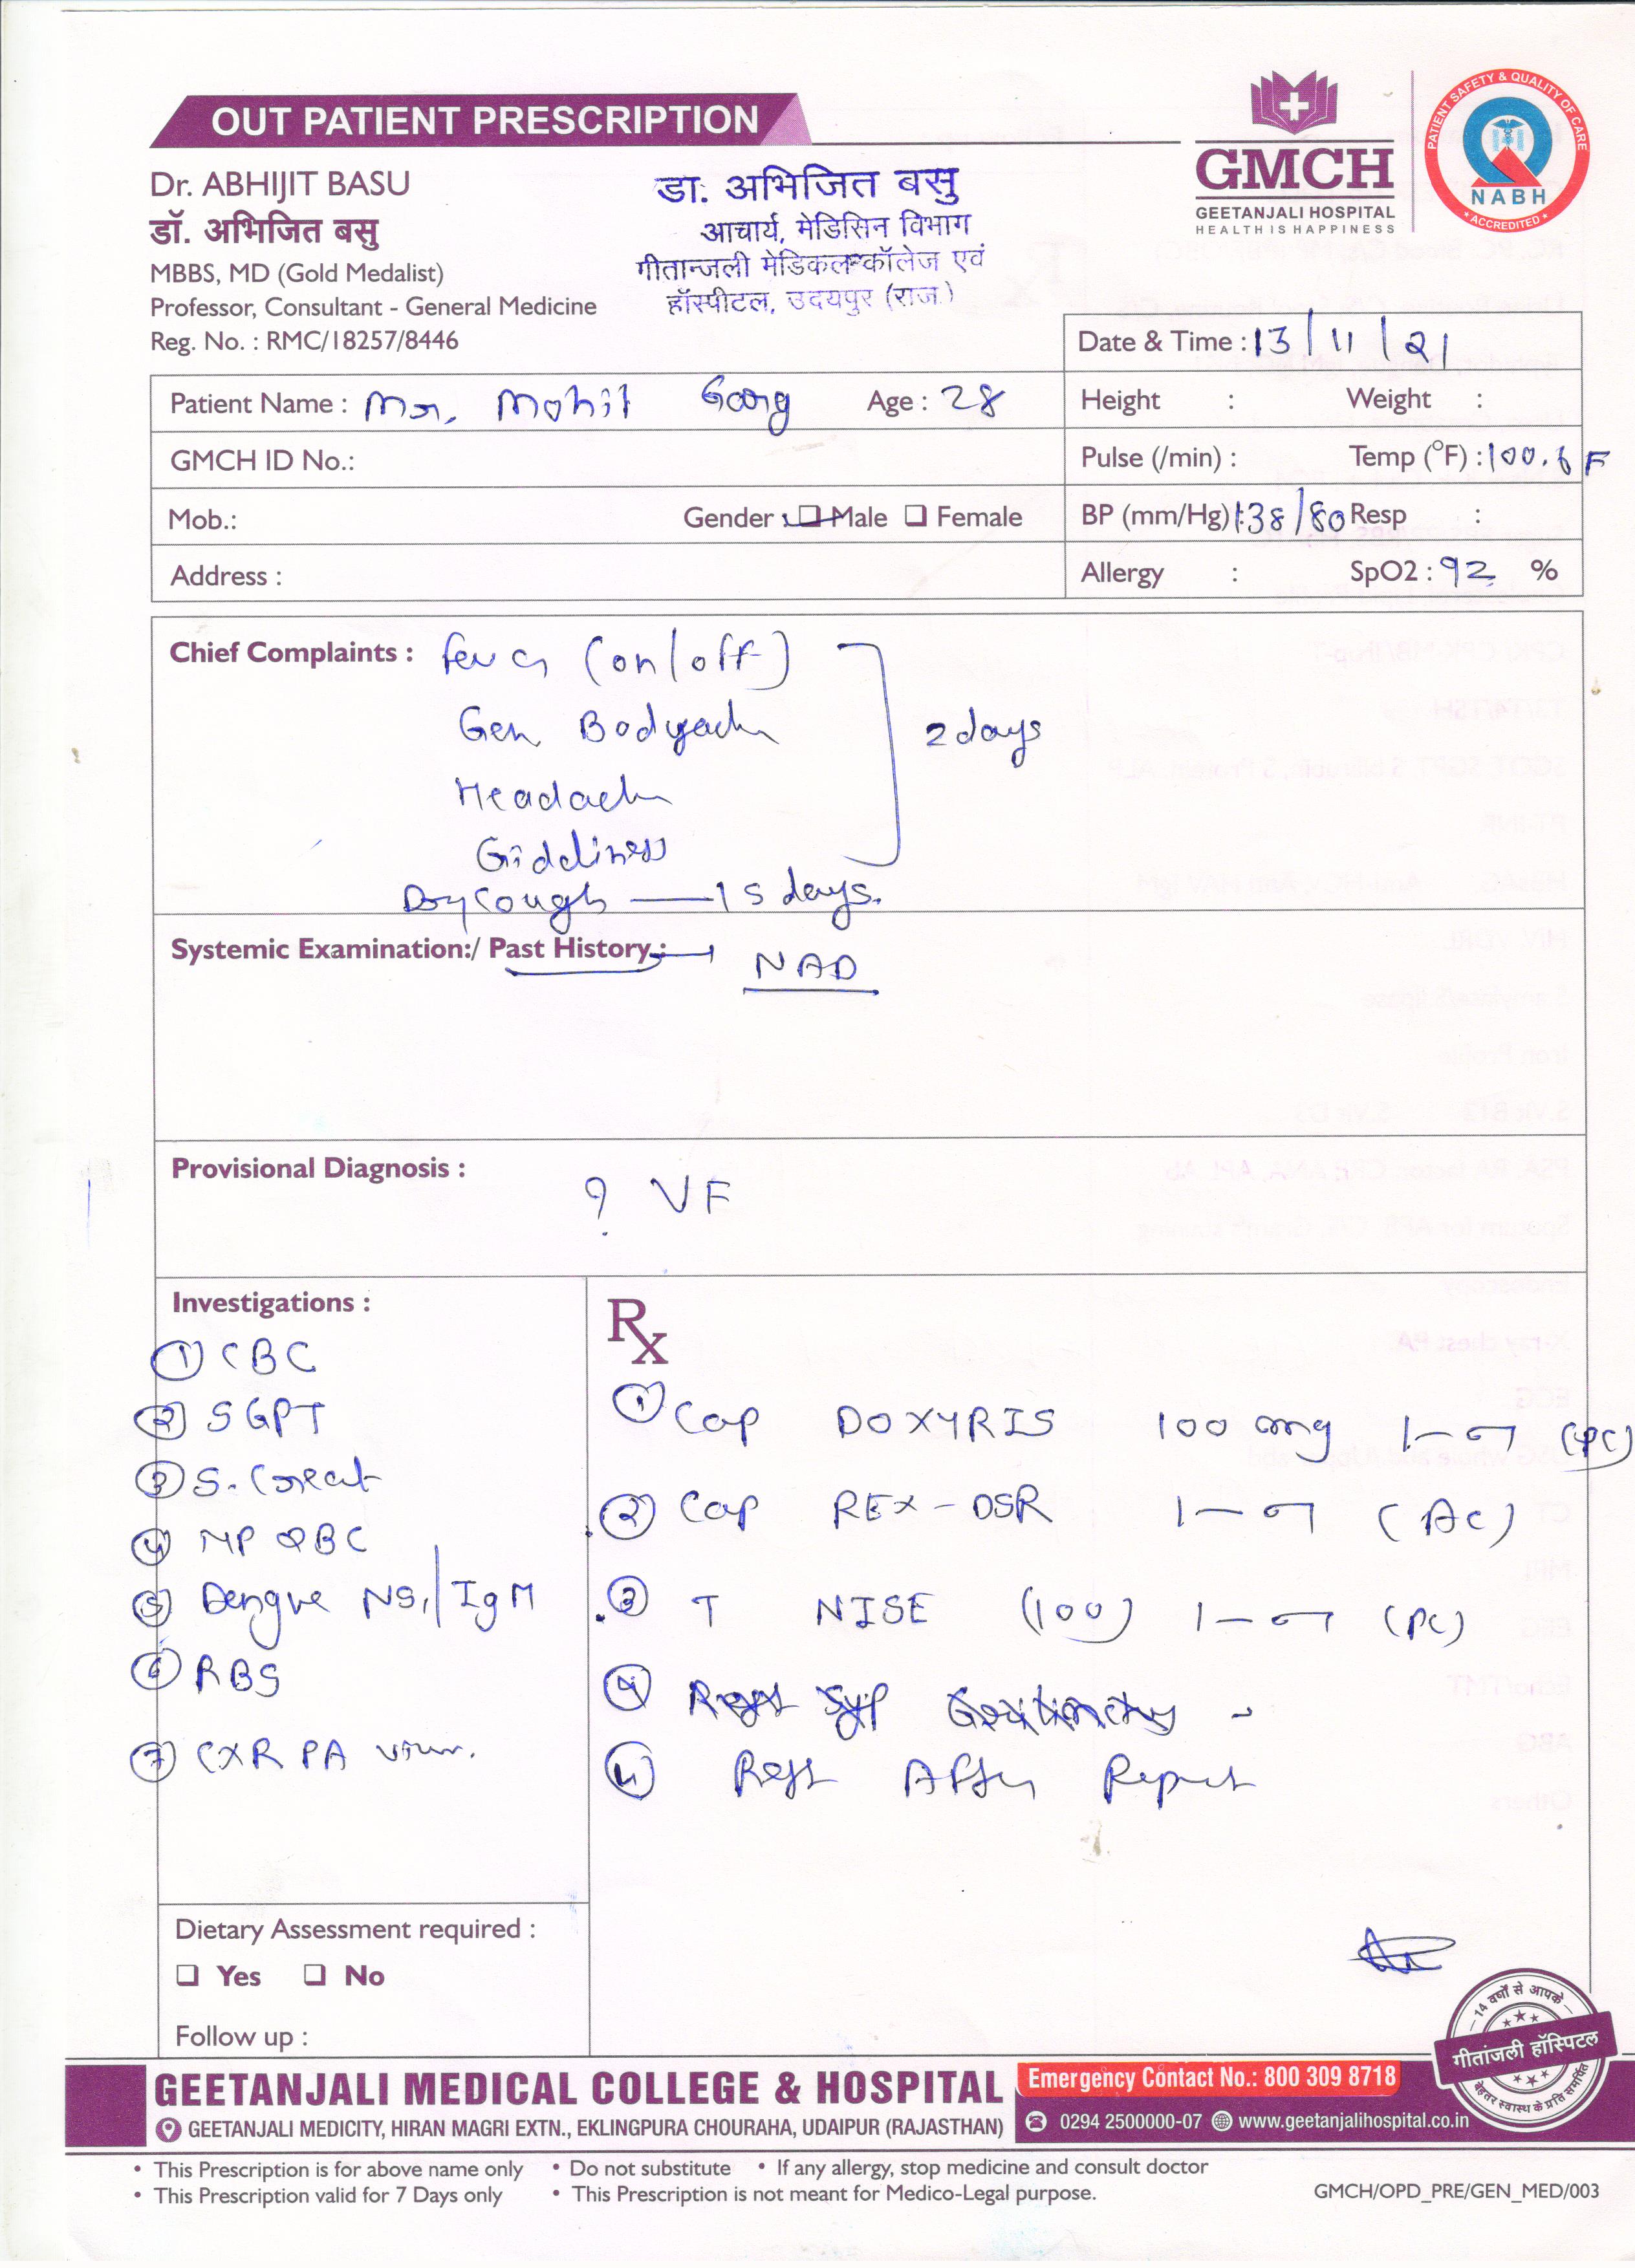 OUT PATIENT PRESCRIPTION
GMCH
GEETANJALI HOSPITAL
HEALTH IS HAPPINESS
PATIENT SAFETY & QUALITY OF CARE
NABH
ACCREDITED
Dr. ABHIJIT BASU
डॉ. अभिजित बसु
MBBS, MD (Gold Medalist)
Professor, Consultant - General Medicine
Reg. No. : RMC/18257/8446
डा. अभिजित बसु
आचार्य, मेडिसिन विभाग
गीतान्जली मेडिकल कॉलेज एवं
हॉस्पीटल, उदयपुर (राज.)
Date & Time : 13/11/21
Patient Name : Mr. Mohit Garg Age : 28
Height : Weight :
GMCH ID No.:
Pulse (/min) : Temp (°F) : 100.6 F
Mob.: Gender : Male Female
BP (mm/Hg) : 138/80 Resp :
Address :
Allergy : SpO2 : 92 %
Chief Complaints : fever (on/off)
Gen Bodyach
Headach
Giddiness
2 days
Dry Cough — 15 days.
Systemic Examination:/ Past History: NAD
Provisional Diagnosis :
? VF
Investigations :
① CBC
② SGPT
③ S. Creat
④ MP QBC
⑤ Dengue NS1/IgM
⑥ RBS
⑦ CXR PA view.
Rx
① Cap DOXYRIS 100 mg 1-0-1 (PC)
② Cap REX-DSR 1-0-1 (AC)
③ T NISE (100) 1-0-1 (PC)
④ Syp
④ Rest After Report
Dietary Assessment required :
Yes No
Follow up :
14 वर्षों से आपके
गीतांजली हॉस्पिटल
बेहतर स्वास्थ के प्रति समर्पित
GEETANJALI MEDICAL COLLEGE & HOSPITAL
GEETANJALI MEDICITY, HIRAN MAGRI EXTN., EKLINGPURA CHOURAHA, UDAIPUR (RAJASTHAN)
Emergency Contact No.: 800 309 8718
0294 2500000-07 www.geetanjalihospital.co.in
• This Prescription is for above name only • Do not substitute • If any allergy, stop medicine and consult doctor
• This Prescription valid for 7 Days only • This Prescription is not meant for Medico-Legal purpose.
GMCH/OPD_PRE/GEN_MED/003